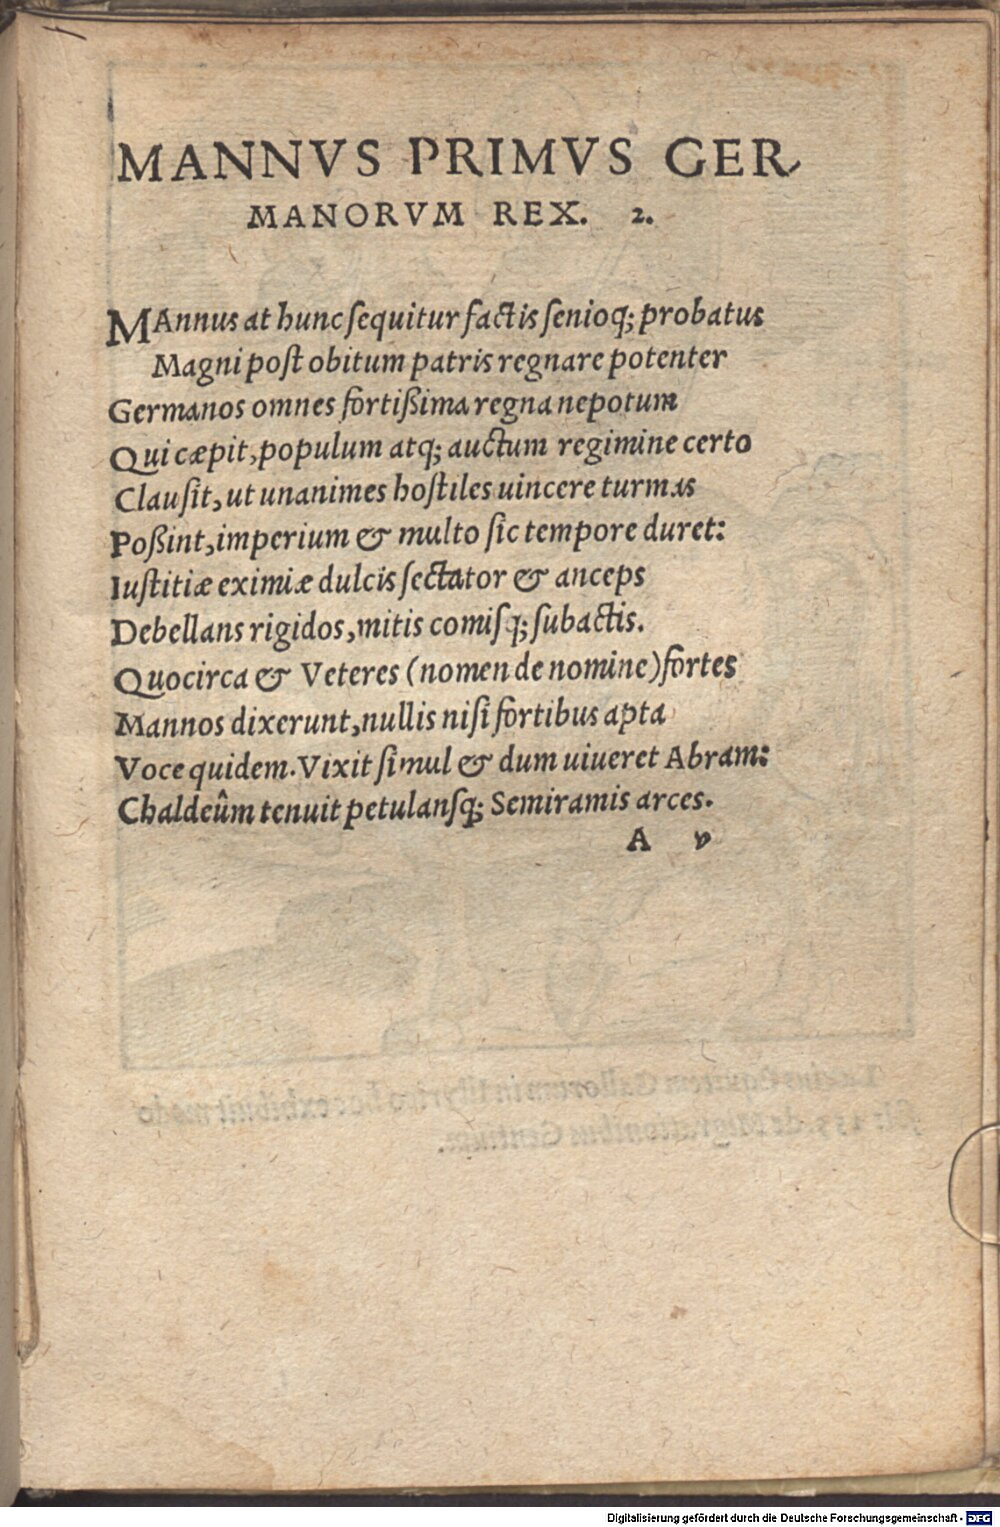 MANNVS PRIMVS GER-
MANORVM REX. 2.
MAnnus at hunc ſequitur factis ſenioq; probatus
Magni poſt obitum patris regnare potenter
Germanos omnes fortißima regna nepotum
Qui cæpit, populum atq; auctum regimine certo
Clauſit, ut unanimes hoſtiles uincere turmas
Poßint, imperium & multo ſic tempore duret:
Iuſtitiæ eximiæ dulcis ſectator & anceps
Debellans rigidos, mitis comiſq; ſubactis.
Quocirca & Veteres (nomen de nomine) fortes
Mannos dixerunt, nullis niſi fortibus apta
Voce quidem. Vixit ſimul & dum uiueret Abram:
Chaldeûm tenuit petulanſq; Semiramis arces.
A v
Digitalisierung gefördert durch die Deutsche Forschungsgemeinschaft - DFG